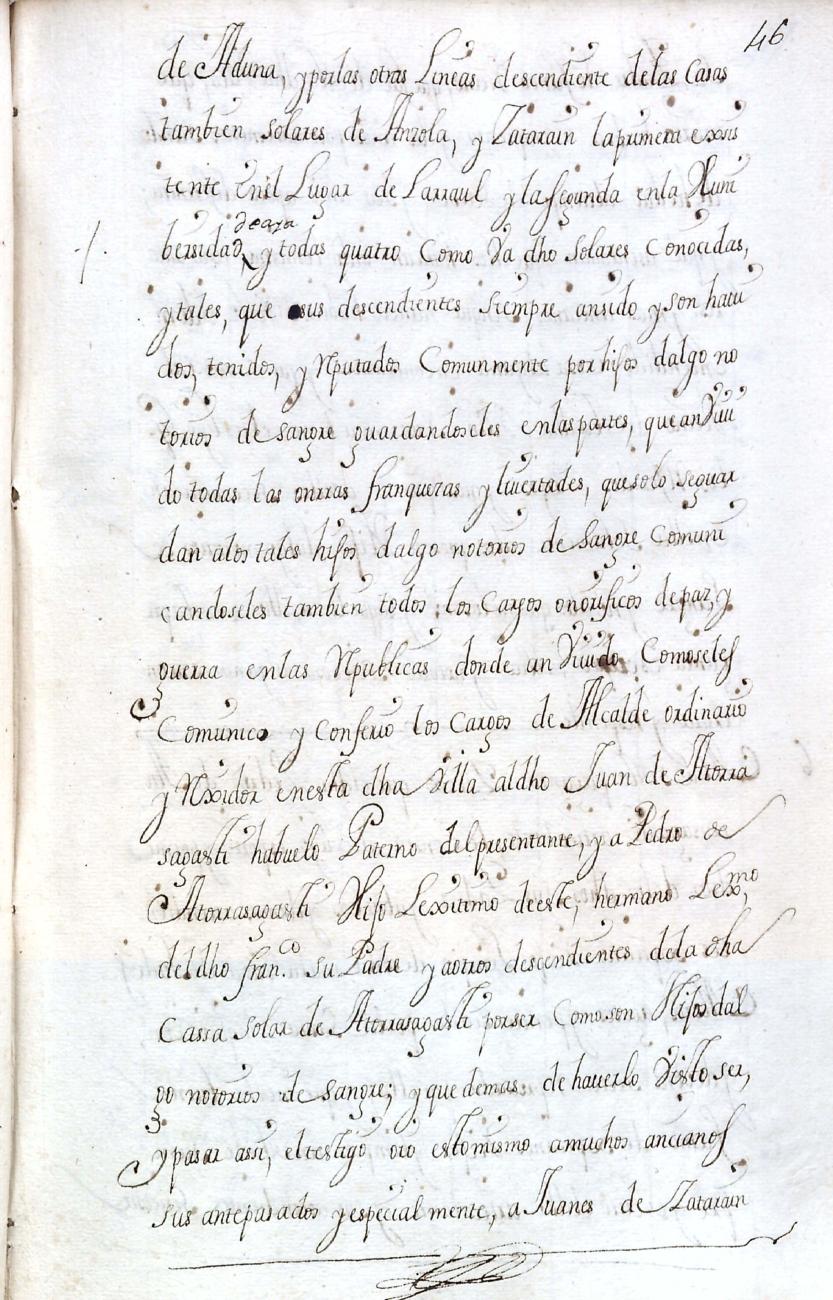 46
de Aduna, y por las otras Lineas descendiente de las Casas
tambien solares de Anzola, y Zatarain la primera exsis
tente En el Lugar de Larraul y la segunda en la Vuni
de aya
bersidad, y todas quatro Como Va dho Solares Conocidas,
y tales, que sus descendientes siempre an sido y son havi
dos, tenidos, y Reputados Comunmente por hijos dalgo no
torios de sangre guardandoseles en las partes, que an Vivi
do todas las onrras franquezas y livertades, que solo se guar
dan a los tales hijos dalgo notorios de Sangre Comuni
candoseles tambien todos los Cargos onorificos de paz, y
guerra en las Republicas donde an Vivido Como se les
Comunico y Confirio los Cargos de Alcalde ordinario
y Rexidor en esta dha Villa al dho Juan de Atorra
sagasti habuelo Paterno del presentante, y a Pedro de
Atorrasagasti Hijo Lexitimo de este, hermano Lexmo,
del dho Franco. su Padre y a otros descendientes de la dha
Cassa Solar de Atorrasagasti por ser Como son Hijos dal
go notorios de Sangre; y que demas de haverlo Visto ser,
y pasar assi, el testigo oio esto mismo a muchos ancianos
sus antepasados y especialmente, a Juanes de Zatarain